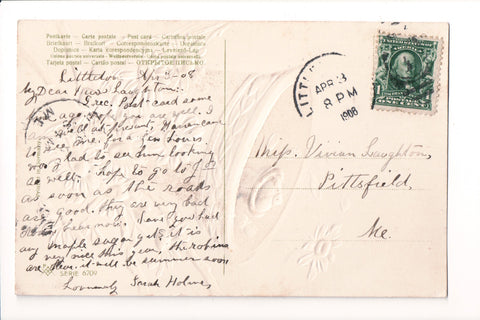 Postkarte – Carte postale – Post card – Cartolina postale
Briefkaart – Brefkort – Correspondenzkarte
Dopisnice – Karta korespondencyjna – Levelező-Lap
Tarjeta postal – Cartão postal – ОТКРЫТОЕ ПИСЬМО
Littleton Apr 3-08
My Dear Miss Laughton:-
I rec. Post-card some
time ago. Hope you are well. I
cold at present,
to see me for a few hours
was glad to see him looking
so well. I hope to go to
as soon as the roads
are good. They are very bad
here now. Have you had
any maple sugar yet, it is
very nice this year, the robins
are here. it will be summer soon
Lovingly Sarah Holmes
SERIE 6709
LITTL
APR 3
8 PM
1908
1
Miss Vivian Laughton,
Pittsfield,
Me.